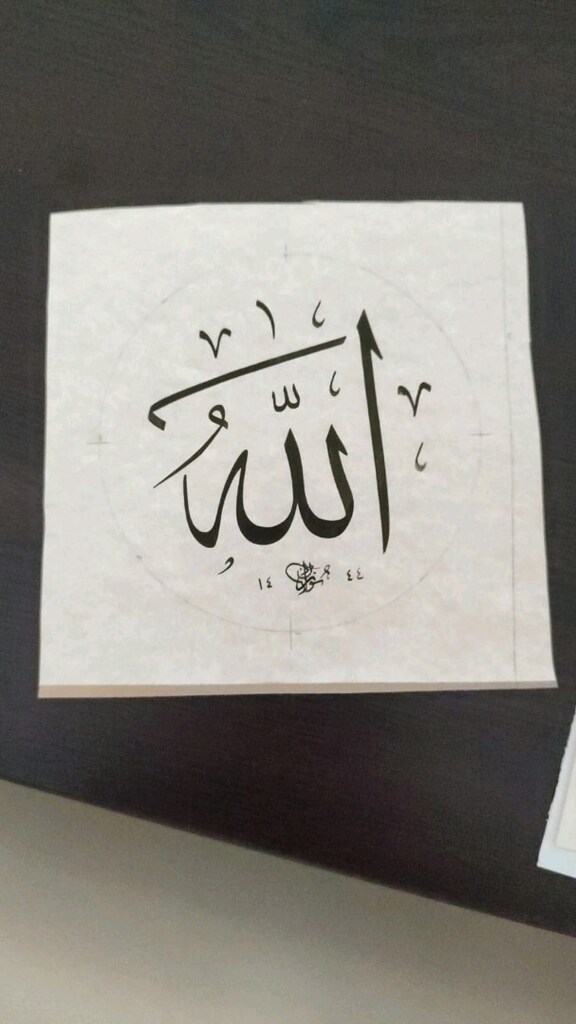 الله
١٤ ٤٤